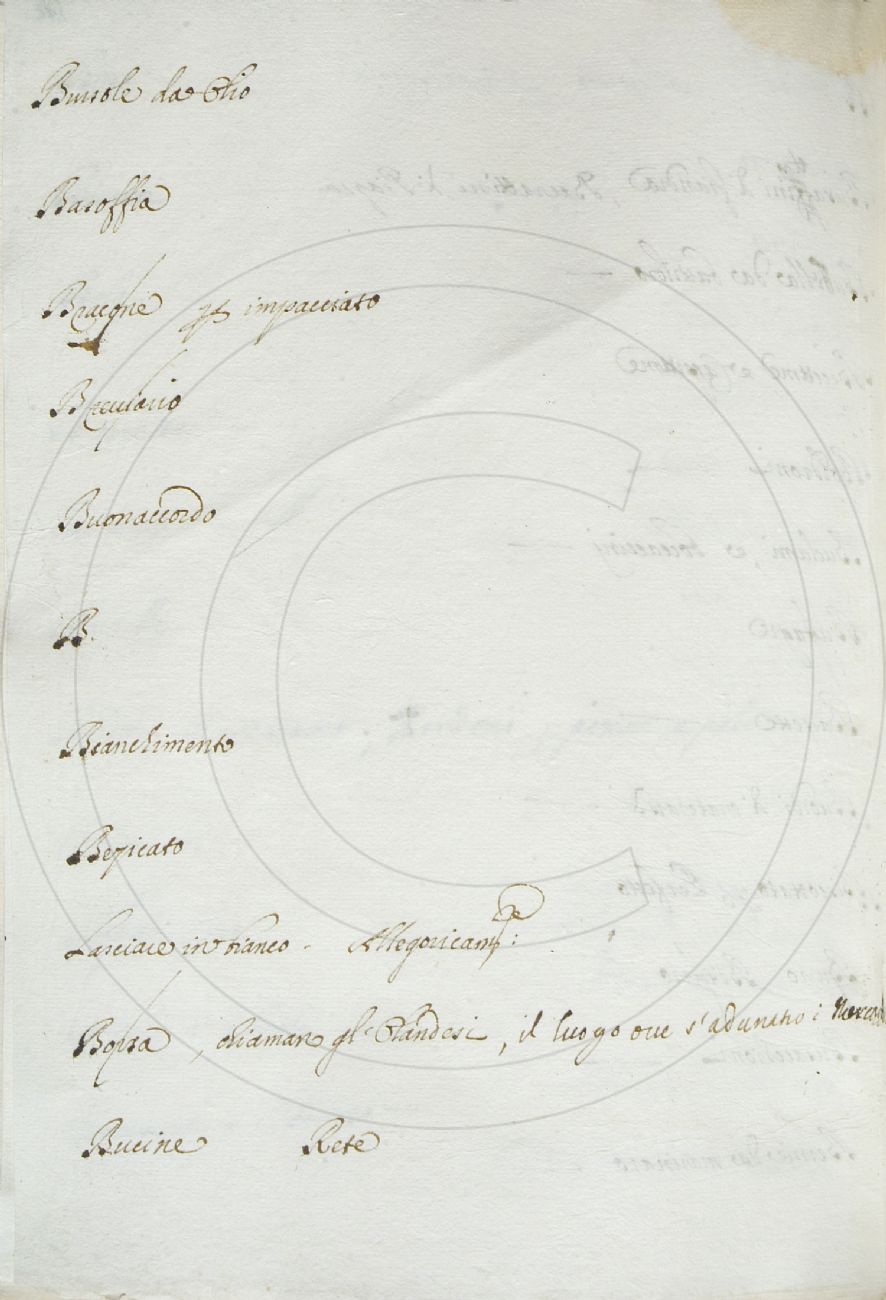 Bussole da Olio
Basoffia
Bracone per impacciato
Breviario
Buonaccordo
B.
Bianchimento
Bezicato
Lasciare in bianco - Allegoricamte:
Borsa, chiaman gl'Olandesi, il luogo ove s'adunano i
Bucine Rete